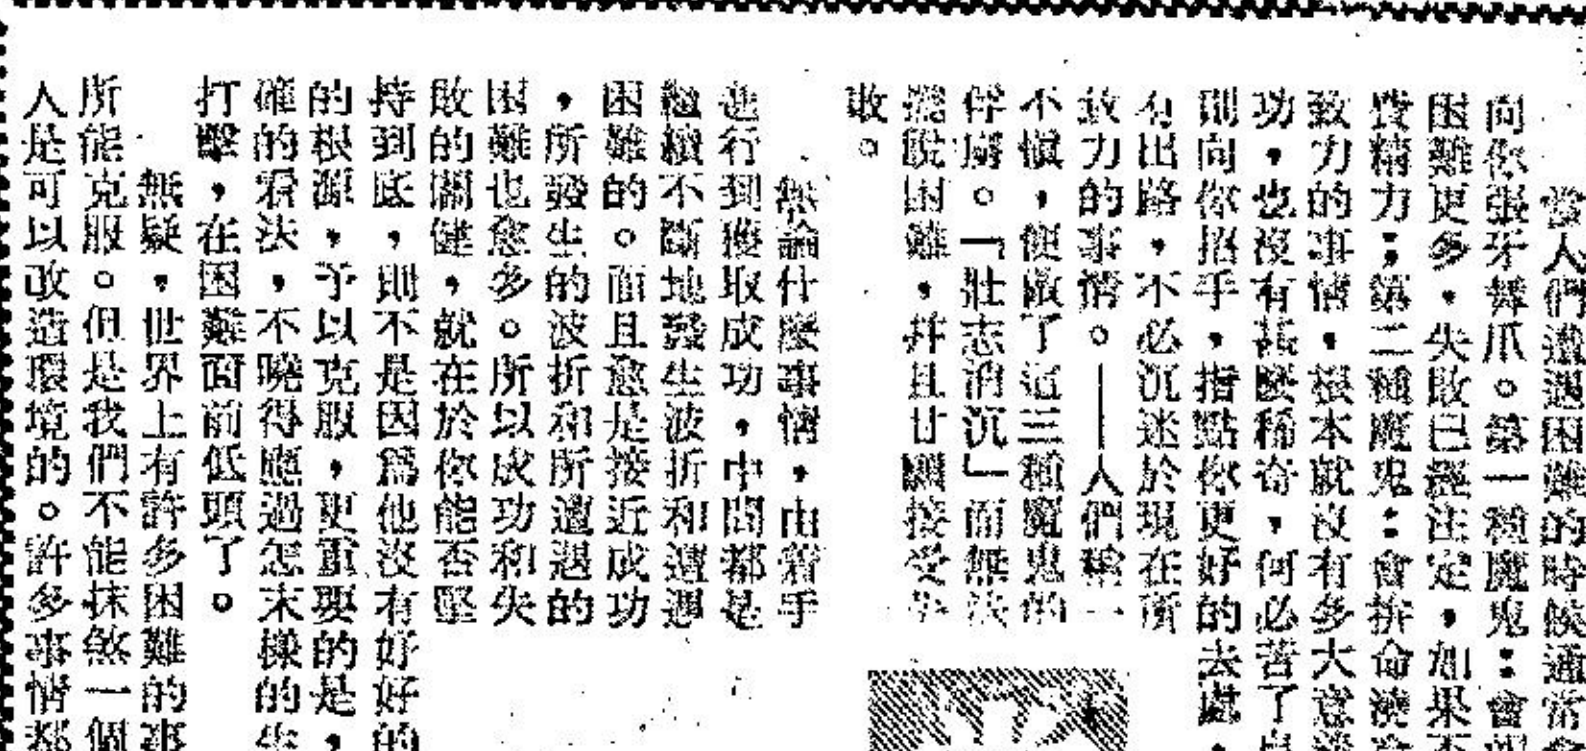 當人們遭遇困難的時候通常會
向你張牙舞爪。第一種魔鬼：會
困難更多，失敗已經注定，如果不
費精力；第二種魔鬼：會拚命
致力的事情，根本就沒有多大意
功，也沒有甚麼稀奇，何必苦了
則向你招手，指點你更好的去處，
有出路，不必沉迷於現在所
致力的事情。——人們稍一
不慎，便做了這三種魔鬼的
俘虜。「壯志消沉」而無法
擺脫困難，并且甘願接受失
敗。
無論什麼事情，由着手
進行到獲取成功，中間都是
繼續不斷地發生波折和遭遇
困難的。而且愈是接近成功
，所發生的波折和所遭遇的
困難也愈多。所以成功和失
敗的關健，就在於你能否堅
持到底，則不是因爲他沒有好好的
的根源，予以克服，更重要的是，
確的看法，不曉得應過怎末樣的生
打擊，在困難面前低頭了。
無疑，世界上有許多困難的事
所能克服。但是我們不能抹煞一個
人是可以改造環境的。許多事情都